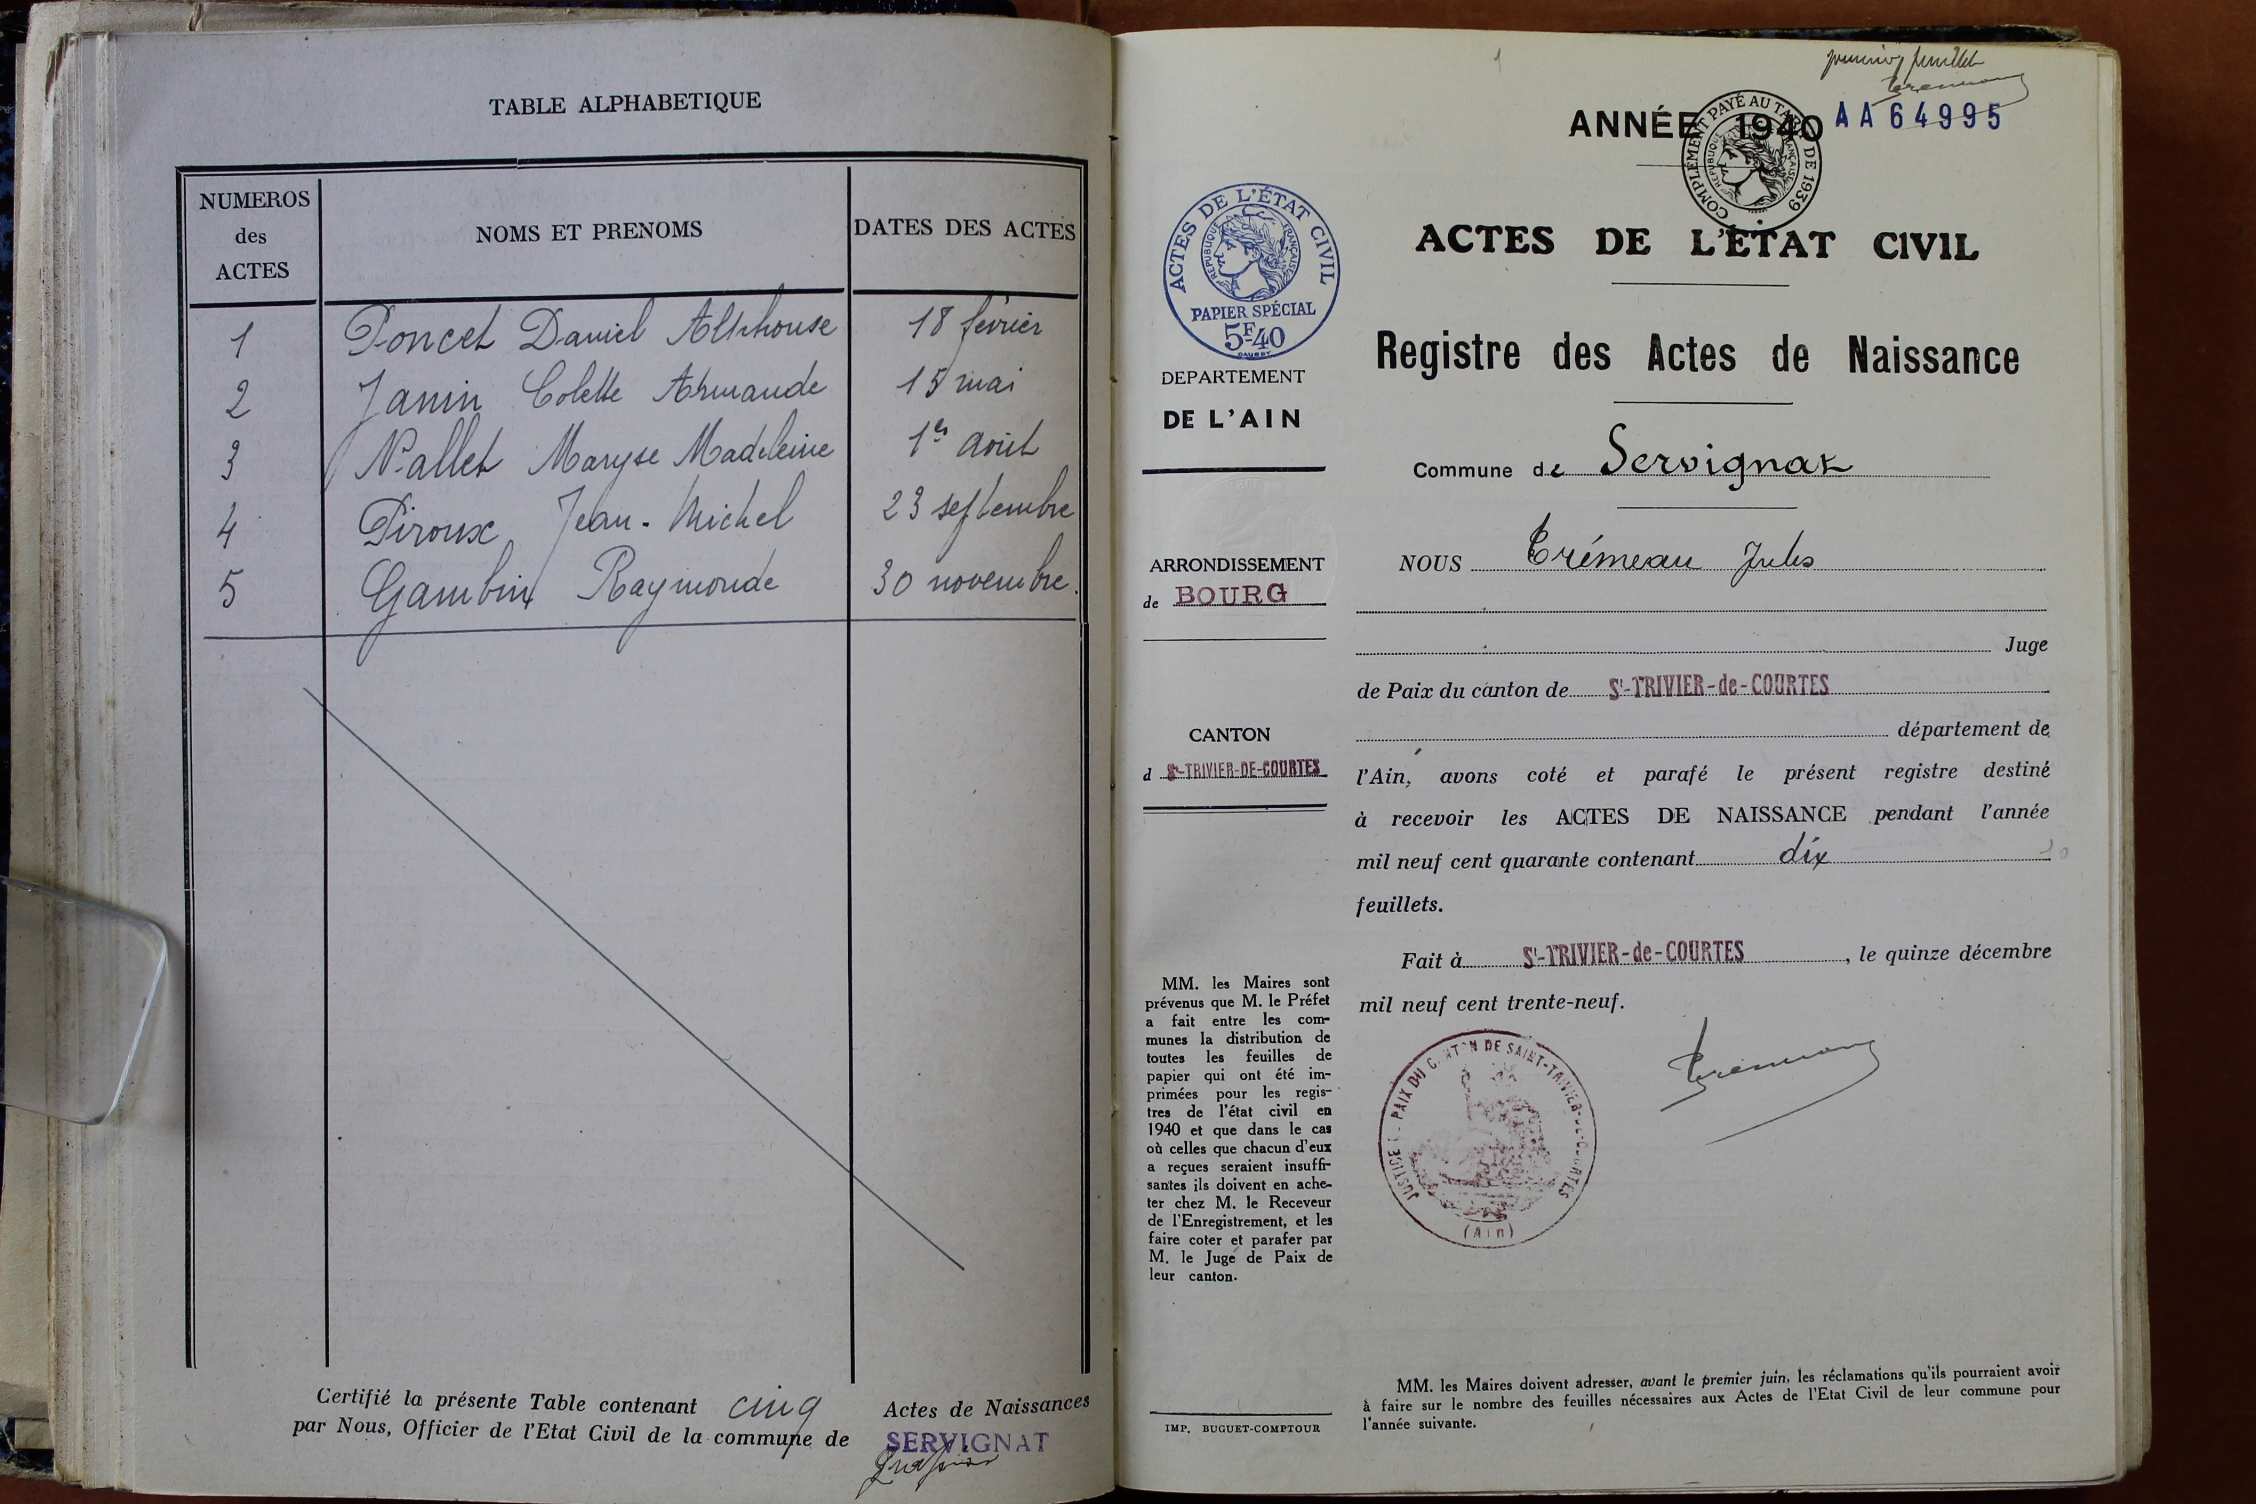 TABLE ALPHABETIQUE
NUMEROS
des
ACTES
NOMS ET PRENOMS
DATES DES ACTES
1 Poncet Daniel Alphonse 18 février
2 Janin Colette Armande 15 mai
3 Nallet Maryse Madeleine 1er août
4 Piroux Jean-Michel 23 septembre
5 Gambin Raymonde 30 novembre.
Certifié la présente Table contenant cinq Actes de Naissances
par Nous, Officier de l'Etat Civil de la commune de SERVIGNAT
1
premier feuillet
ANNÉE 1940
AA64995
COMPLÉMENT PAYÉ AU TARIF DE 1939
RÉPUBLIQUE FRANÇAISE
ACTES DE L'ÉTAT CIVIL
RÉPUBLIQUE FRANÇAISE
PAPIER SPÉCIAL
5F.40
DEPARTEMENT
DE L'AIN
ARRONDISSEMENT
de BOURG
CANTON
d St-TRIVIER-DE-COURTES
MM. les Maires sont
prévenus que M. le Préfet
a fait entre les com-
munes la distribution de
toutes les feuilles de
papier qui ont été im-
primées pour les regis-
tres de l'état civil en
1940 et que dans le cas
où celles que chacun d'eux
a reçues seraient insuffi-
santes ils doivent en ache-
ter chez M. le Receveur
de l'Enregistrement, et les
faire coter et parafer par
M. le Juge de Paix de
leur canton.
IMP. BUGUET-COMPTOUR
ACTES DE L'ETAT CIVIL
Registre des Actes de Naissance
Commune de Servignat
NOUS Trémeau Jules
Juge
de Paix du canton de St-TRIVIER-de-COURTES
département de
l'Ain, avons coté et parafé le présent registre destiné
à recevoir les ACTES DE NAISSANCE pendant l'année
mil neuf cent quarante contenant dix 10
feuillets.
Fait à St-TRIVIER-de-COURTES, le quinze décembre
mil neuf cent trente-neuf.
JUSTICE DE PAIX DU CANTON DE SAINT-TRIVIER-DE-COURTES
(Ain)
MM. les Maires doivent adresser, avant le premier juin, les réclamations qu'ils pourraient avoir
à faire sur le nombre des feuilles nécessaires aux Actes de l'Etat Civil de leur commune pour
l'année suivante.